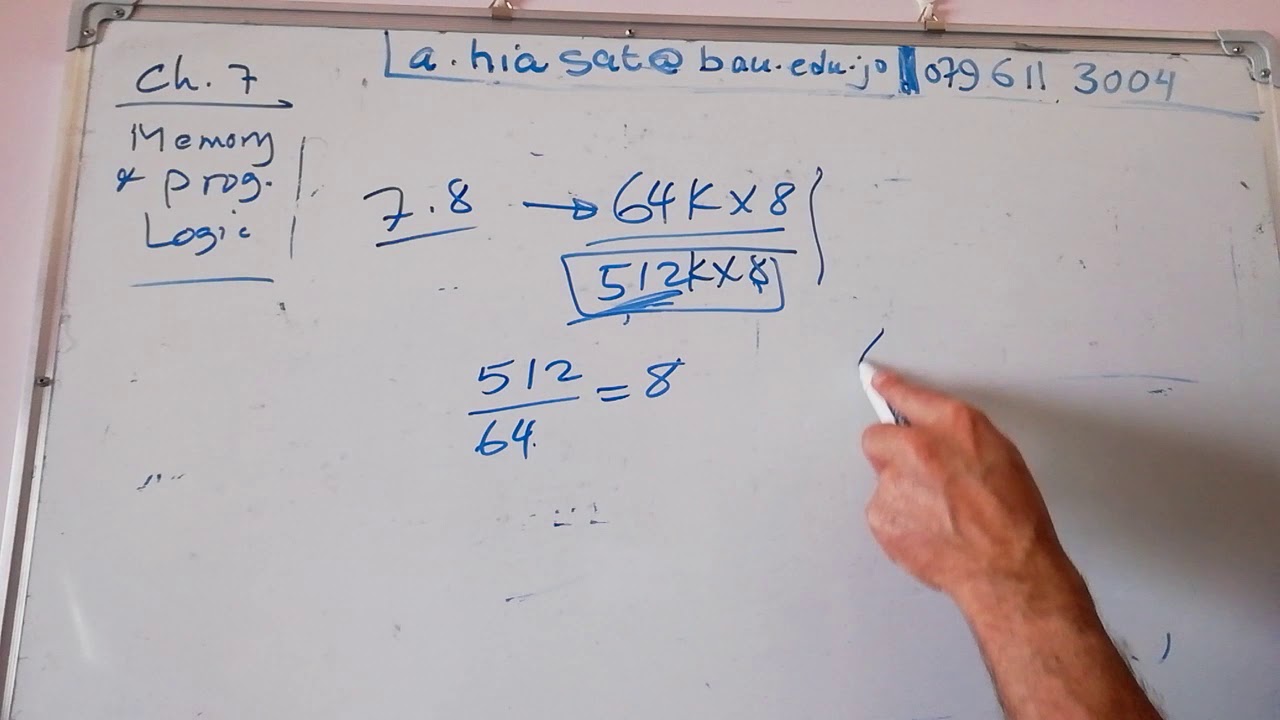 a.hiasat@bau.edu.jo | 079 611 3004
Ch. 7
Memory
& prog.
Logic
7.8 → 64K x 8
512K x 8
512
64
= 8